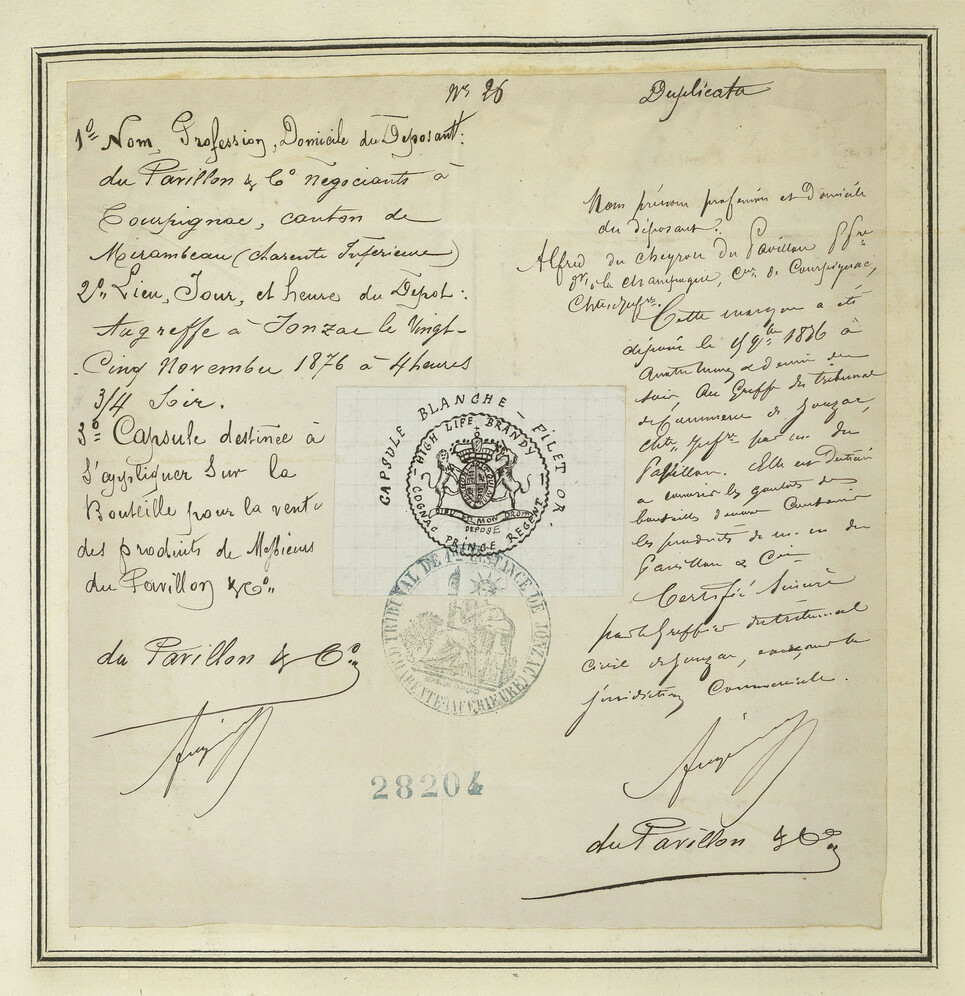 Nº 26
Duplicata
1º Nom, Profession, Domicile du Déposant:
du Pavillon & Cº négociants à
Courpignac, canton de
Mirambeau (Charente Inférieure)
2º Lieu, Jour, et heure du Dépot:
Au greffe à Jonzac le Vingt-
Cinq Novembre 1876 à 4 heures
3/4 Soir.
3º Capsule destinée à
s'appliquer Sur la
Bouteille pour la vente
des produits de Messieurs
du Pavillon & Cº
du Pavillon & Cº
CAPSULE BLANCHE - FILET OR.
HIGH LIFE BRANDY
DIEU ET MON DROIT
DEPOSÉ
COGNAC PRINCE REGENT
TRIBUNAL DE 1ère INSTANCE DE JONZAC
(CHARENTE-INFÉRIEURE)
28204
Nom prénom profession et Domicile
du déposant:
Alfred du Cheyron du Pavillon
la Champagne, Cne de Courpignac,
Chte Infre
Cette marque a été
déposée le 9bre 1876 à
quatre heures & demie du
soir, Au Greffe du tribunal
de Commerce de Jonzac,
Chte Infre par m. du
Pavillon. Elle est Destinée
a couvrir les goulots des
bouteilles devant Contenir
les produits de m. m du
Pavillon & Cie
Certifié Sincère
par le Greffier du tribunal
Civil de Jonzac, exerçant la
juridiction Commerciale.
du Pavillon & Cº